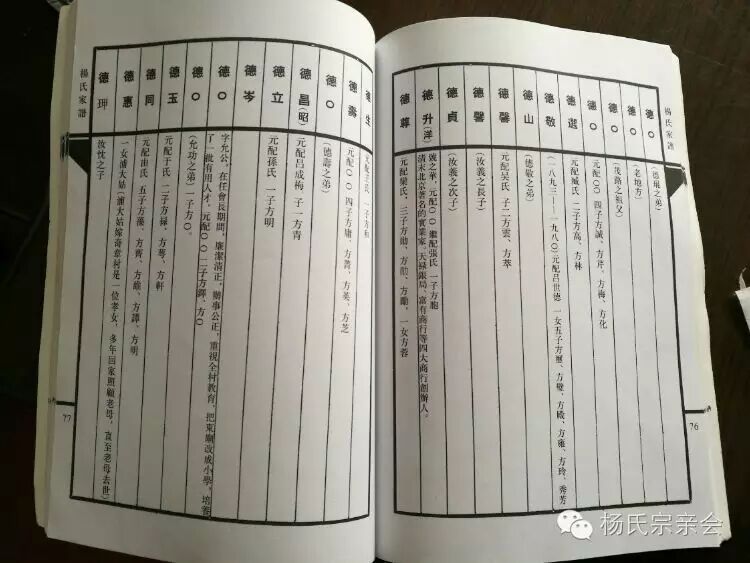 楊氏家譜
德〇 (德縣之弟)
德〇 (老地方)
德〇 (茂路之祖父)
德〇 元配〇〇 四子方誠、方芹、方梅、方化
德選 元配臧氏 二子方高、方林
德敬 (一八九三—一九八〇)元配呂世德 一女五子方壓、方璧、方殿、方雍、方玲、秀芳
德山 (德敬之弟)
德馨 元配吴氏 子二方雲、方萃
德馨 (汝義之長子)
德貞 (汝義之次子)
德升(洋) 號之華,元配〇〇 繼配張氏 一子方胞
清末北京著名的實業家,天祿銀局、富有商行等四大商行創辦人。
德尊 元配欒氏,三子方助、方勛、方勵,一女方蓉
76
德生 元配王氏 一子方和
德壽 元配〇〇 四子方庸、方菁、方英、方芝
德〇 (德壽之弟)
德昌(昭) 元配吕成梅 子一方青
德立 元配孫氏 一子方明
德岑
德〇 字允公,在任會長期間,廉潔清正,辦事公正,重視全村教育,把東廟改成小學,培養
了一批有用人才。元配〇〇 二子方鐸、方〇
德〇 (允功之弟)一子方〇。
德玉 元配于氏 二子方祿、方萼、方軒
德同 元配由氏 五子方漢、方齊、方繞、方譯、方明
德惠 一女浦大姑(浦大姑嫁奇章村是一位孝女,多年回家照顧老母,直至老母去世)
德玶 汝忱之子
楊氏家譜
77
杨氏宗亲会